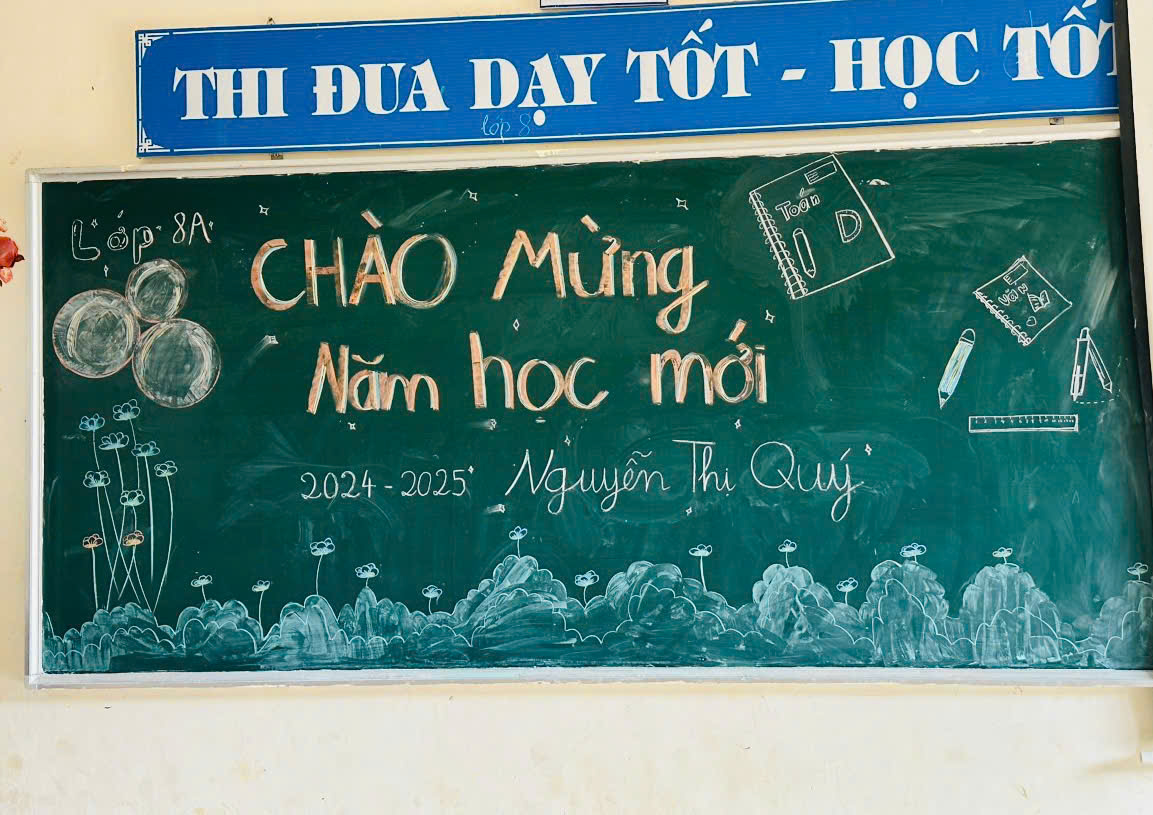 THI ĐUA DẠY TỐT - HỌC TỐT
lớp 8
Lớp 8A
CHÀO Mừng
Năm học mới
2024-2025 Nguyễn Thị Quý
Toán
D
Văn